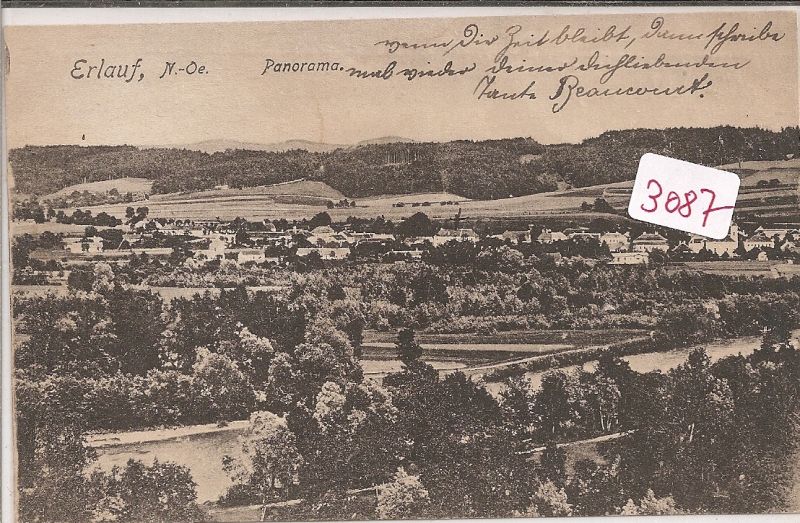 Erlauf, N.-Oe. Panorama.
wenn Dir Zeit bleibt, dann schreibe
mal wieder deiner dichliebenden
Tante Beaucourt.
3087